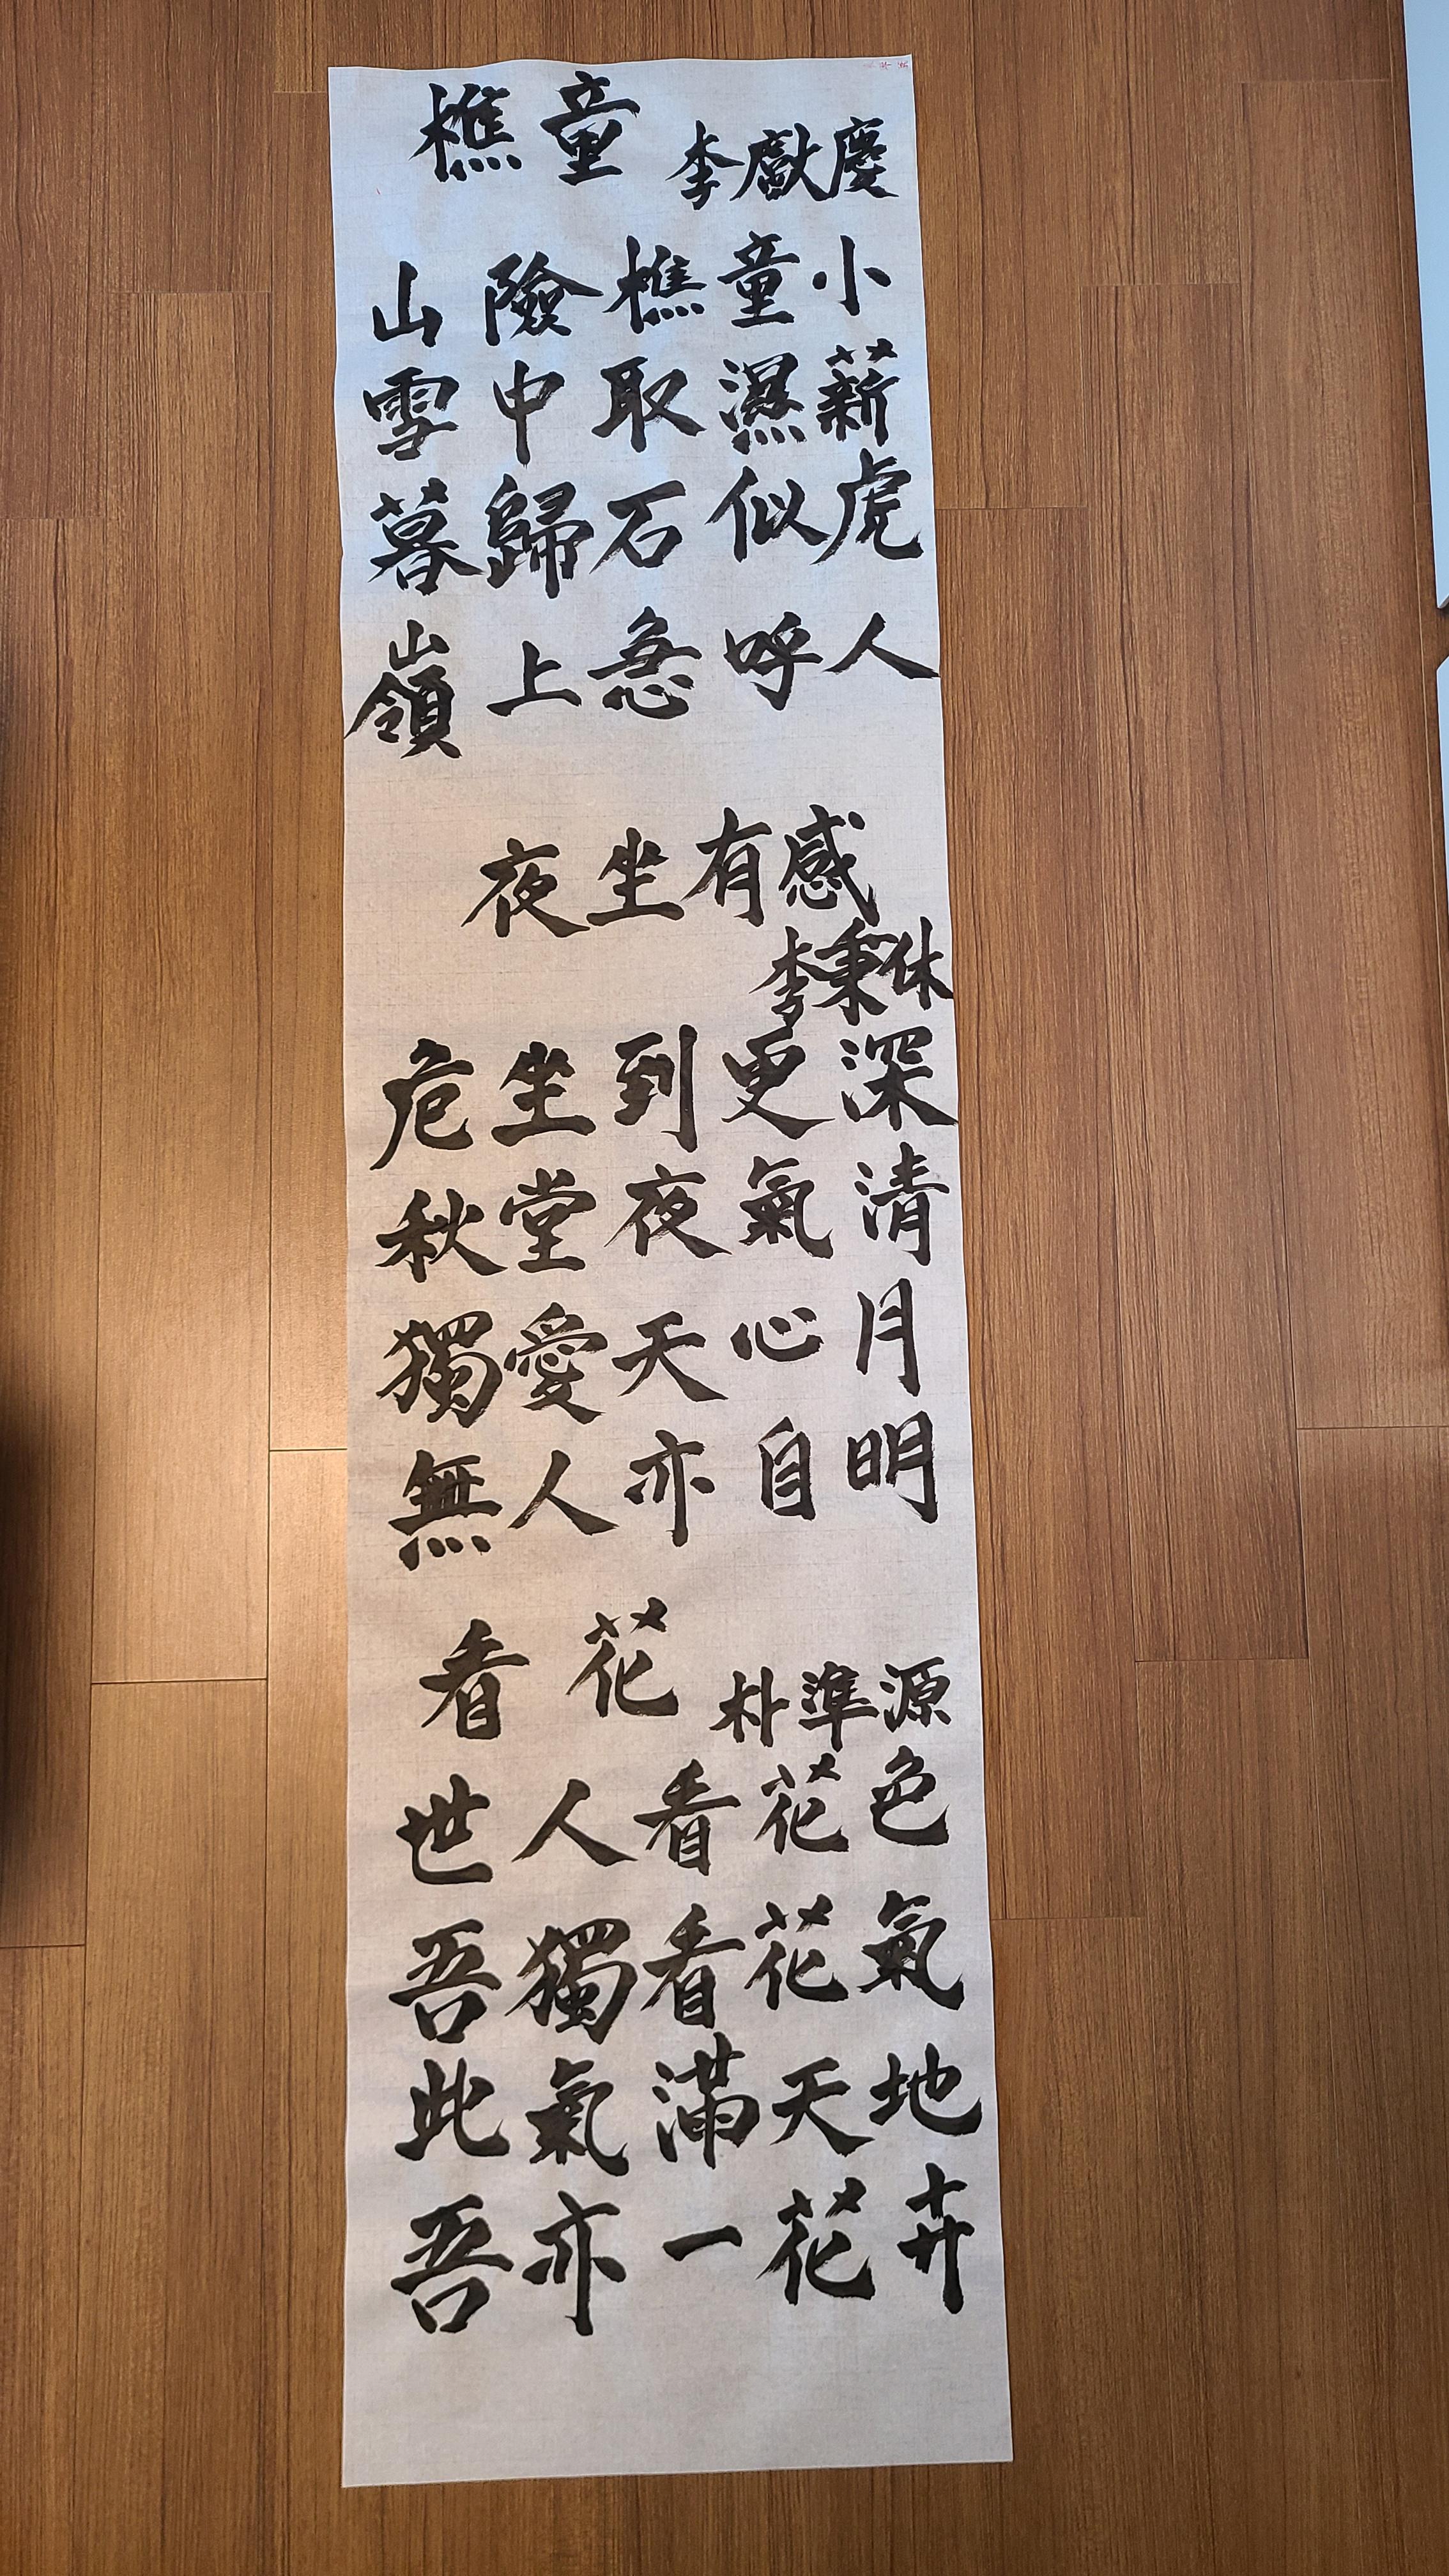 樵童
李獻慶
山險樵童小
雪中取濕薪
暮歸石似虎
嶺上急呼人
夜坐有感
李秉休
危坐到更深
秋堂夜氣清
獨愛天心月
無人亦自明
看花
朴準源
世人看花色
吾獨看花氣
此氣滿天地
吾亦一花卉